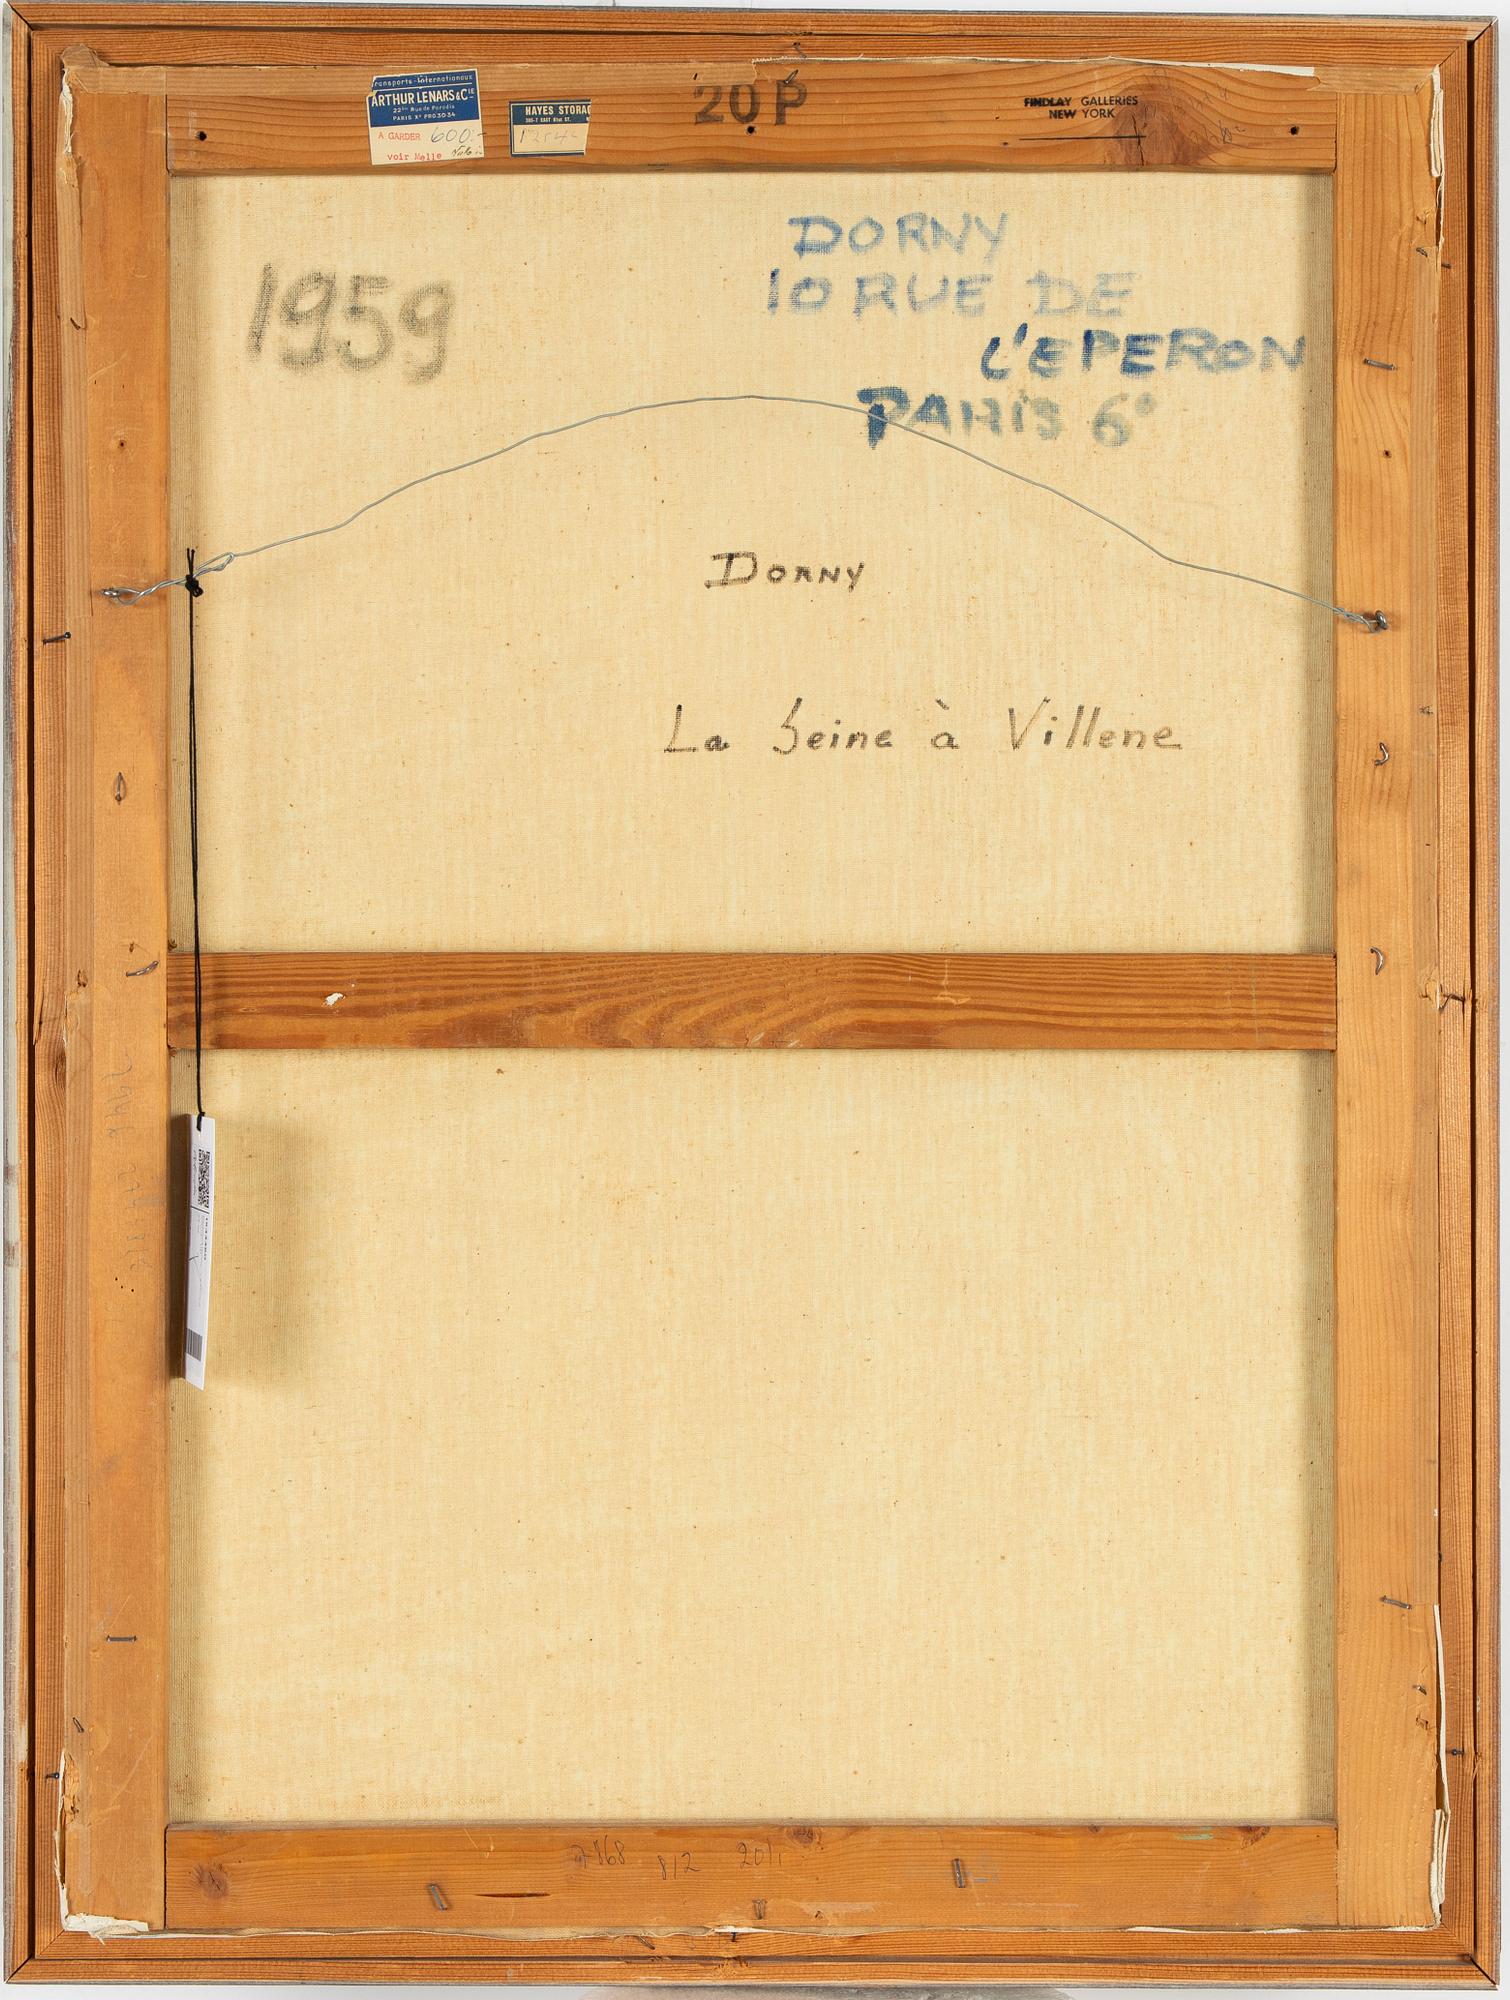 Transports-Internationaux
ARTHUR LENARS & Cie
22bis Rue de Paradis
PARIS Xe PRO 30 34
A GARDER 600.-
voir Melle
HAYES STORAG
305-7 EAST 61st ST.
20P
FINDLAY GALLERIES
NEW YORK
1959
DORNY
10 RUE DE
L'EPERON
PARIS 6e
DORNY
La Seine à Villene
7868 812 20